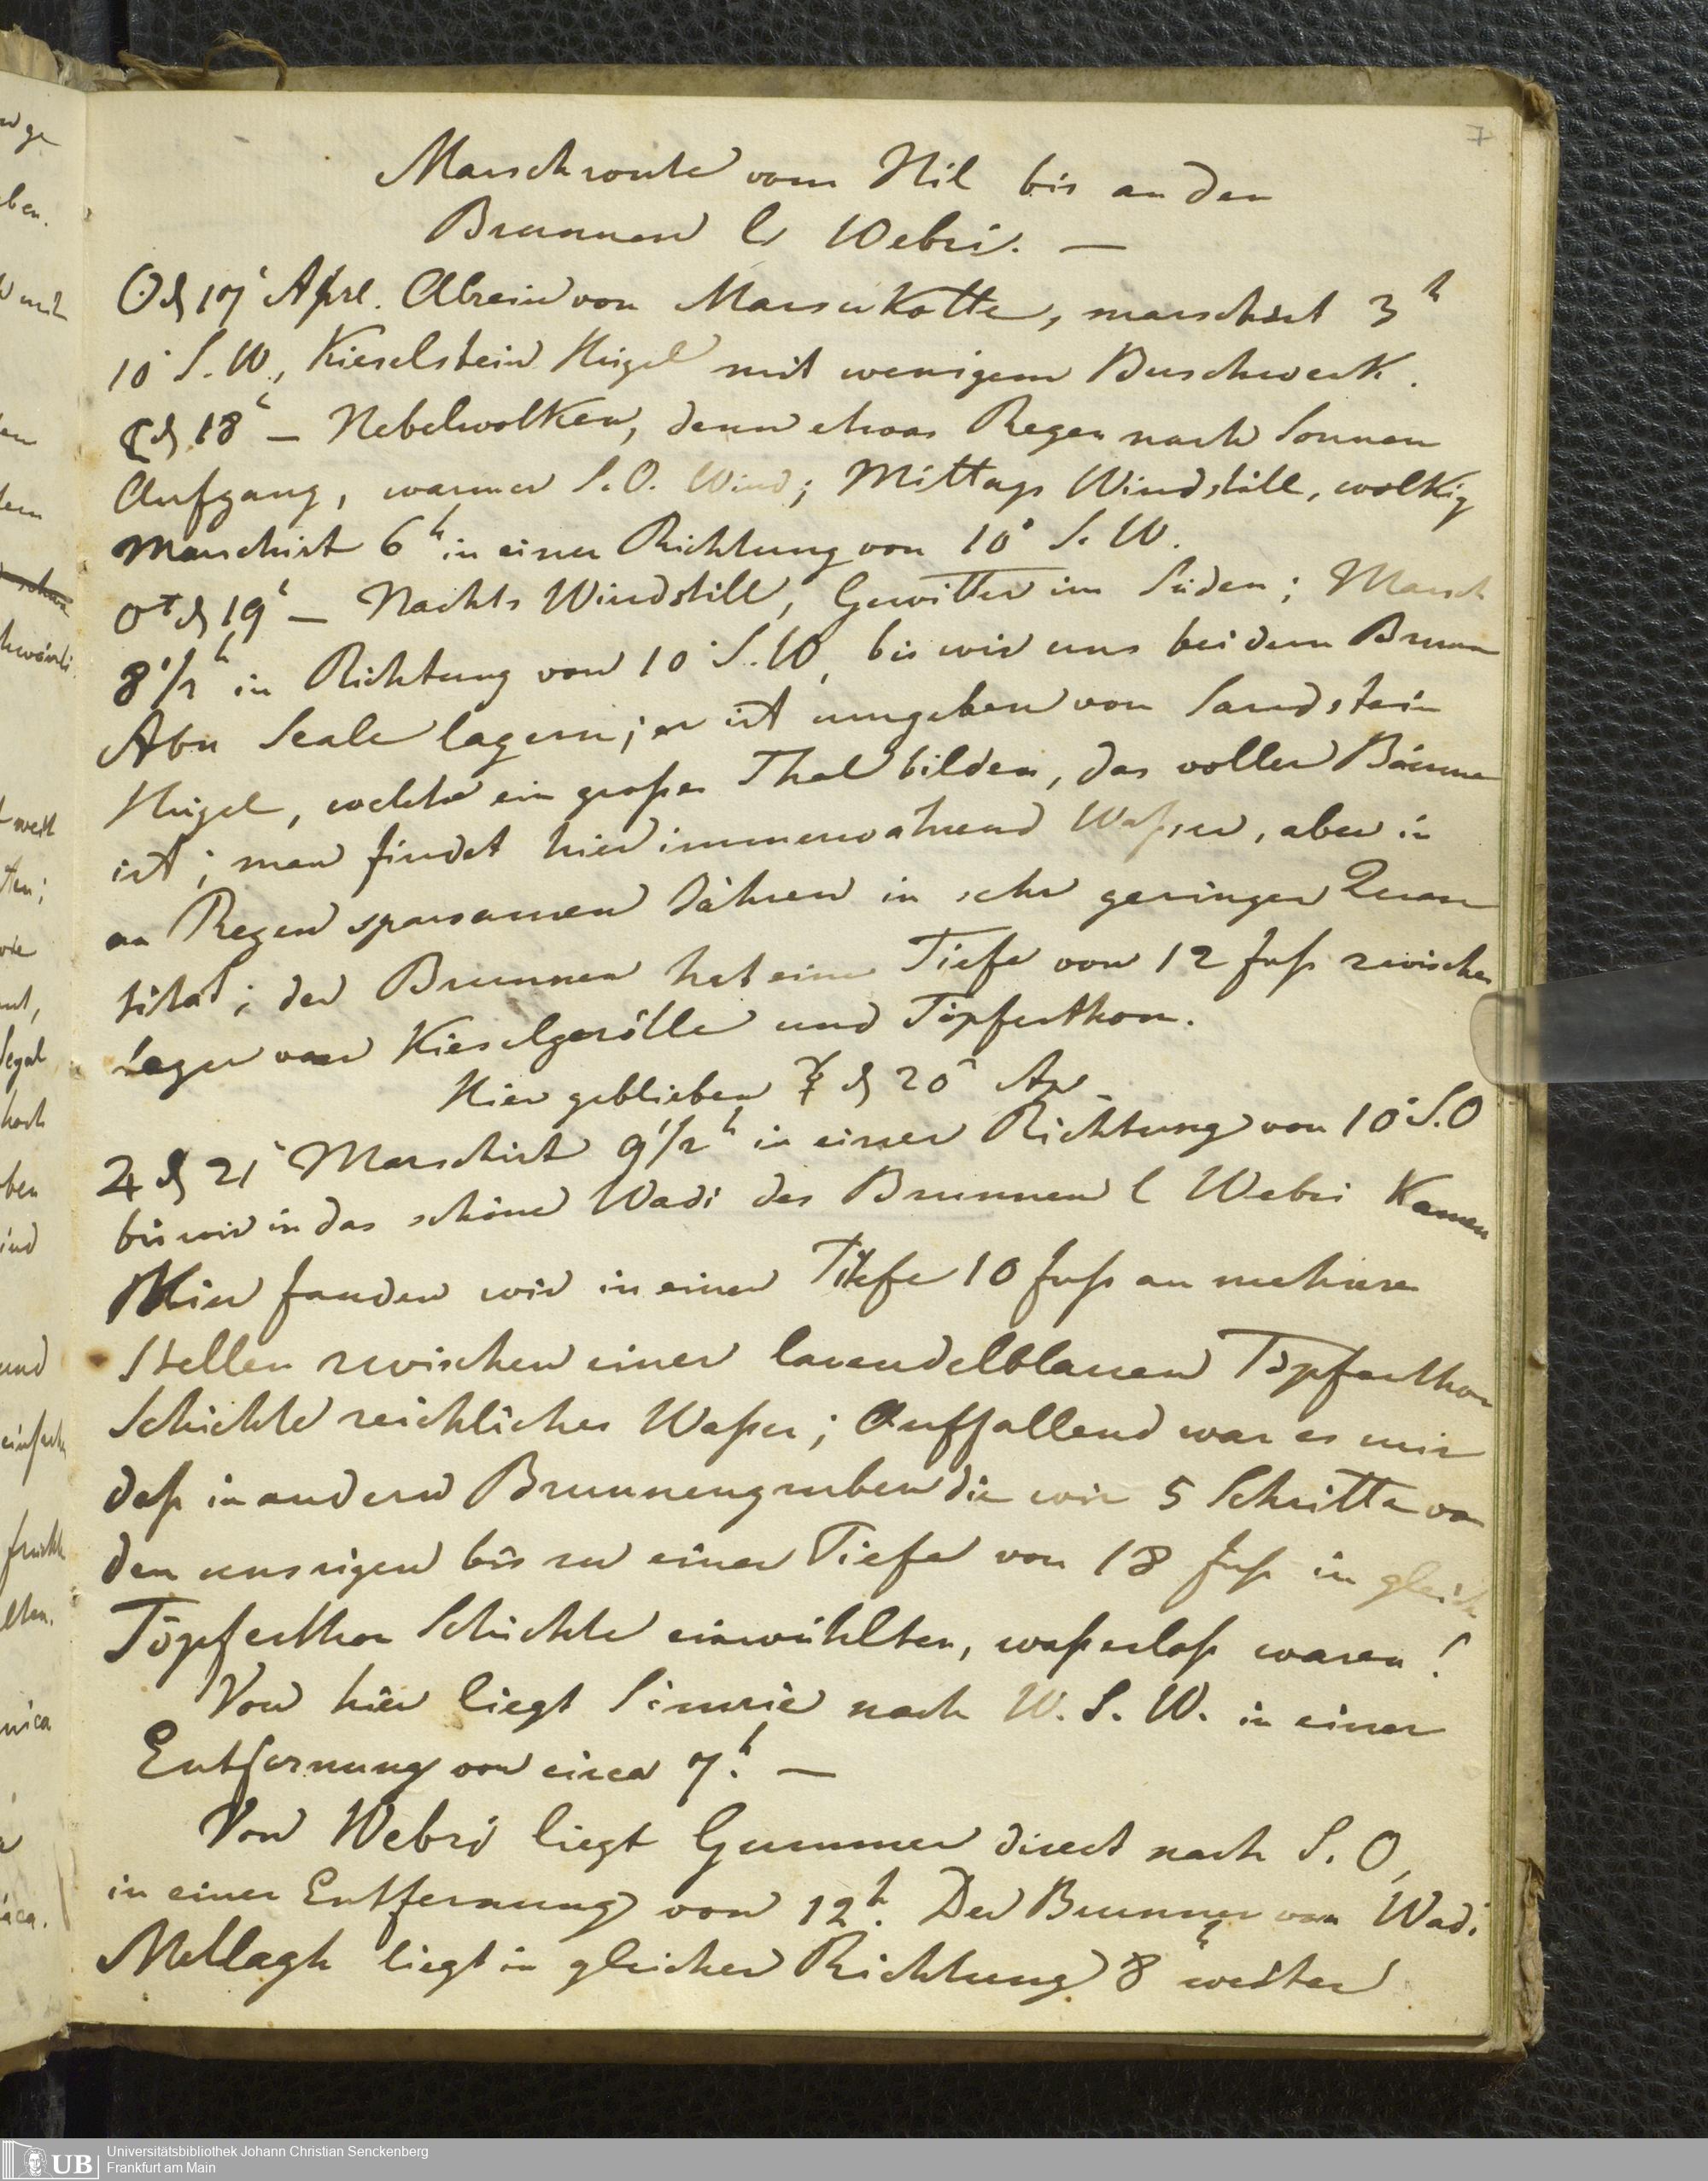 7
Marschroute vom Nil bis an den
Brunnen l Webri. —
☉ d 17t Aprl. Abreise von Marsukotte, marschirt 3h
10° S. W., Kieselstein Hügel mit wenigem Buschwerk.
☾ d 18t — Nebelwolken, denn etwas Regen nach Sonnen
Aufgang, warmer S. O. Wind; Mittags Windstill, wolkig
Marschirt 6h in einer Richtung von 10° S. W.
♂ d 19t — Nachts Windstill, Gewitter im Süden; Marsch
8 1/2h in Richtung von 10° S. W, bis wir uns bei dem Brunn
Abu Seale lagern; er ist umgeben von Sandstein
Hügel, welche ein großes Thal bilden, das voller Bäume
ist; man findet hier immerwahrend Waßer, aber in
an Regen sparsamen Jahren in sehr geringer Quan
titat; der Brunnen hat eine Tiefe von 12 Fuß zwischen
Lager von Kieselgerölle und Töpferthon.
Hier geblieben ☿ d 20t Ap
♃ d 21t Marschirt 9 1/2h in einer Richtung von 10° S. O
bis wir in das schöne Wadi des Brunnen l Webri kamen
Hier fanden wir in einer Tiefe 10 Fuß an mehrere
Stellen zwischen einer lavendelblauen Töpferthon
Schichte reichliches Waßer; Auffallend war es mir
daß in andern Brunnengruben die wir 5 Schritte von
den unsrigen bis zu einer Tiefe von 18 Fuß in gleich
Töpferthon Schichte einwühlten, waßerlos waren!
Von hier liegt Simrie nach W. S. W. in einer
Entfernung von circa 7h. —
Von Webri liegt Gummer direct nach S. O,
in einer Entfernung von 12h. Der Brunnen von Wadi
Mellagh liegt in gleicher Richtung 8h weiter
Universitätsbibliothek Johann Christian Senckenberg
UB Frankfurt am Main